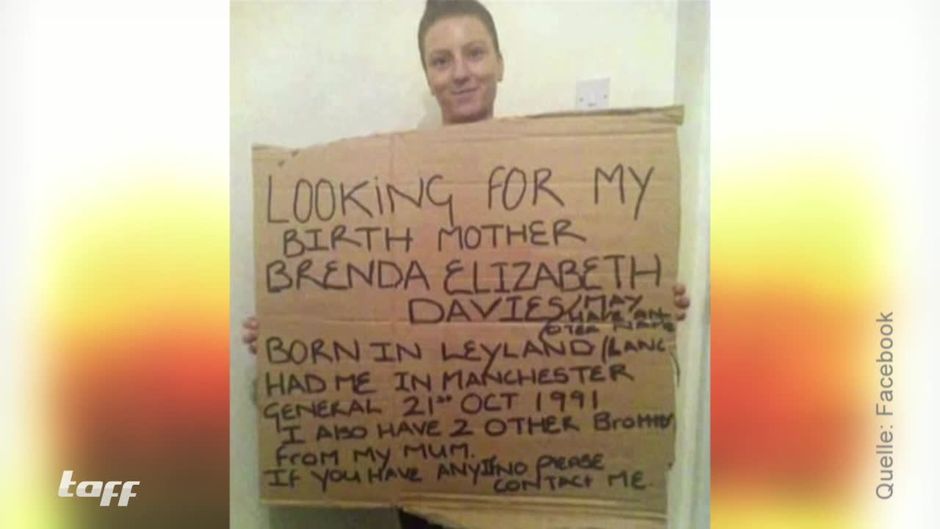 LOOKING FOR MY
BIRTH MOTHER
BRENDA ELIZABETH
DAVIES/MAY
HAVE AN-
OTER NAME
BORN IN LEYLAND (LANC
HAD ME IN MANCHESTER
GENERAL 21st OCT 1991
I AlSO HAVE 2 OTHER BroTHER
FroM MY MUM.
IF YOU HAVE ANY INFO PLEASE
CONTACT ME.
taff
Quelle: Facebook